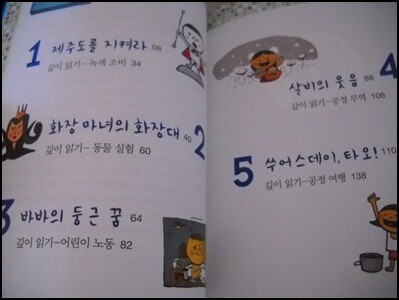 1 제주도를 지켜라 08
깊이 읽기 - 녹색 소비 34
화장 마녀의 화장대 40 2
깊이 읽기 - 동물 실험 60
3 바바의 둥근 꿈 64
깊이 읽기 - 어린이 노동 82
4
살비의 웃음 88
깊이 읽기 - 공정 무역 106
5 쑤어스데이, 타오! 110
깊이 읽기 - 공정 여행 138